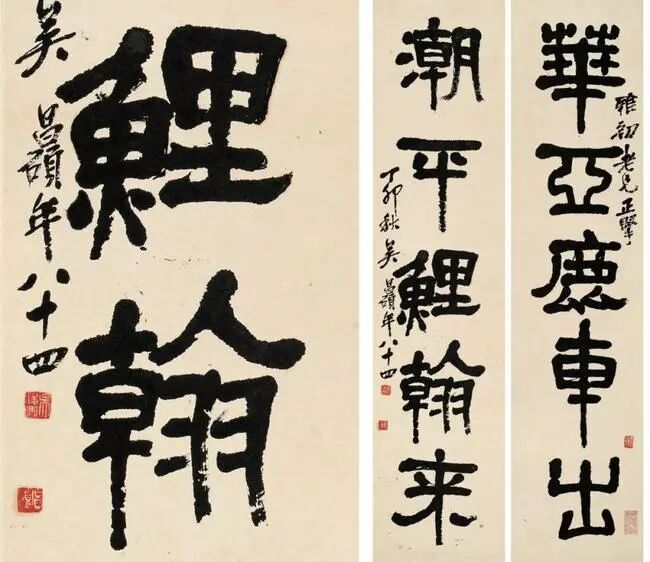 華亞鹿車出
雅初老兄正
潮平鯉翰来
丁卯秋吳昌碩年八十四
鯉翰
吳昌碩年八十四